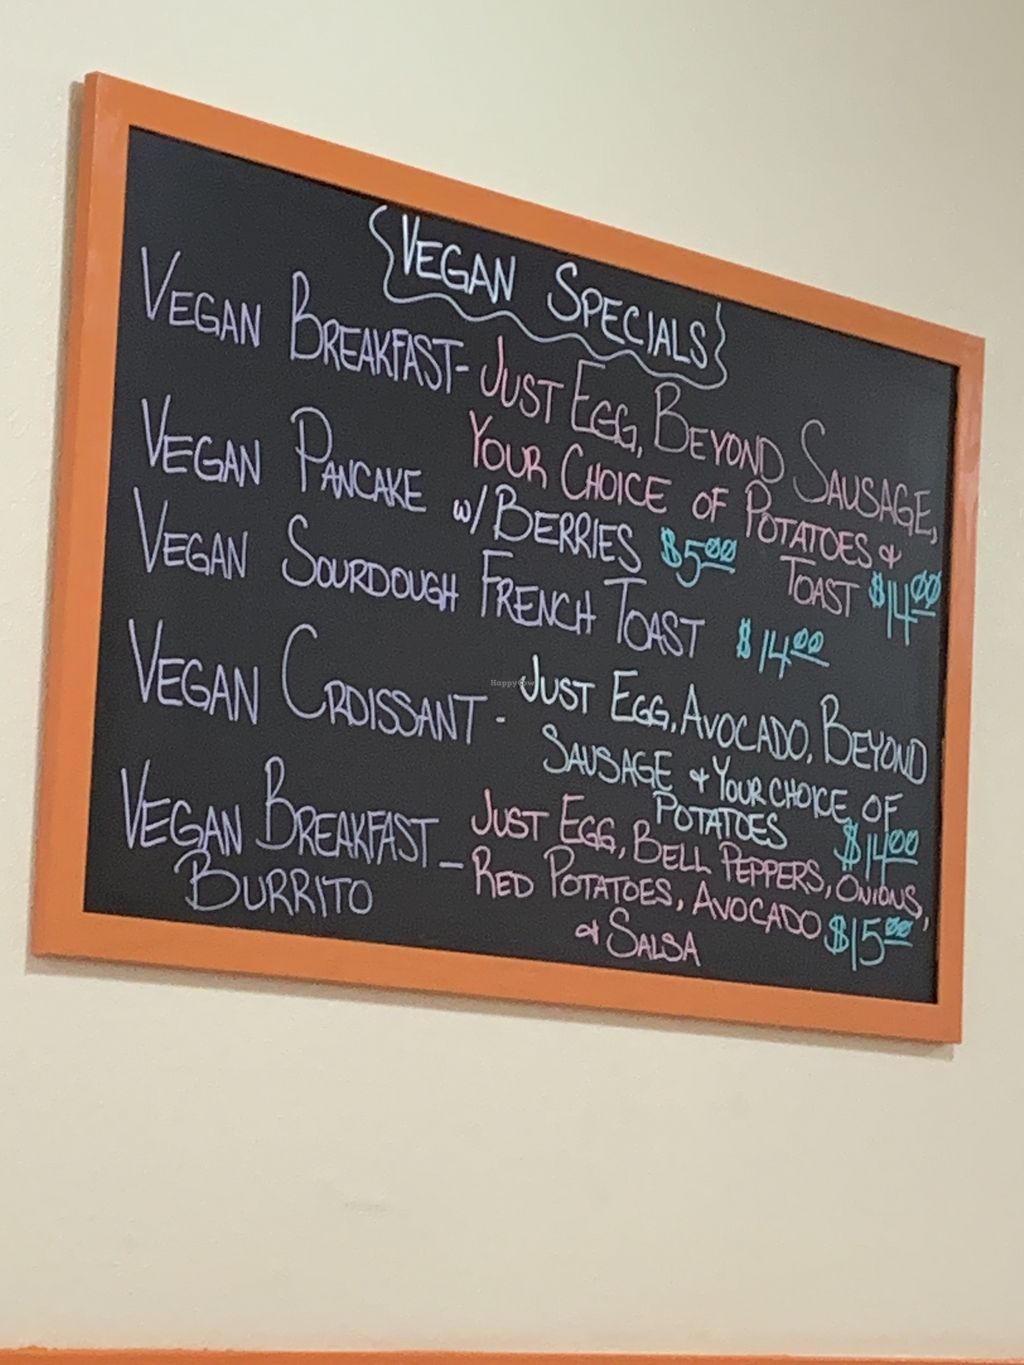 VEGAN SPECIALS
VEGAN BREAKFAST- JUST EGG, BEYOND SAUSAGE,
YOUR CHOICE OF POTATOES &
TOAST $14.00
VEGAN PANCAKE w/BERRIES $5.00
VEGAN SOURDOUGH FRENCH TOAST $14.00
VEGAN CROISSANT - JUST EGG, AVOCADO, BEYOND
SAUSAGE & YOUR CHOICE OF
POTATOES $14.00
VEGAN BREAKFAST - JUST EGG, BELL PEPPERS, ONIONS,
BURRITO RED POTATOES, AVOCADO $15.00
& SALSA
HappyCow